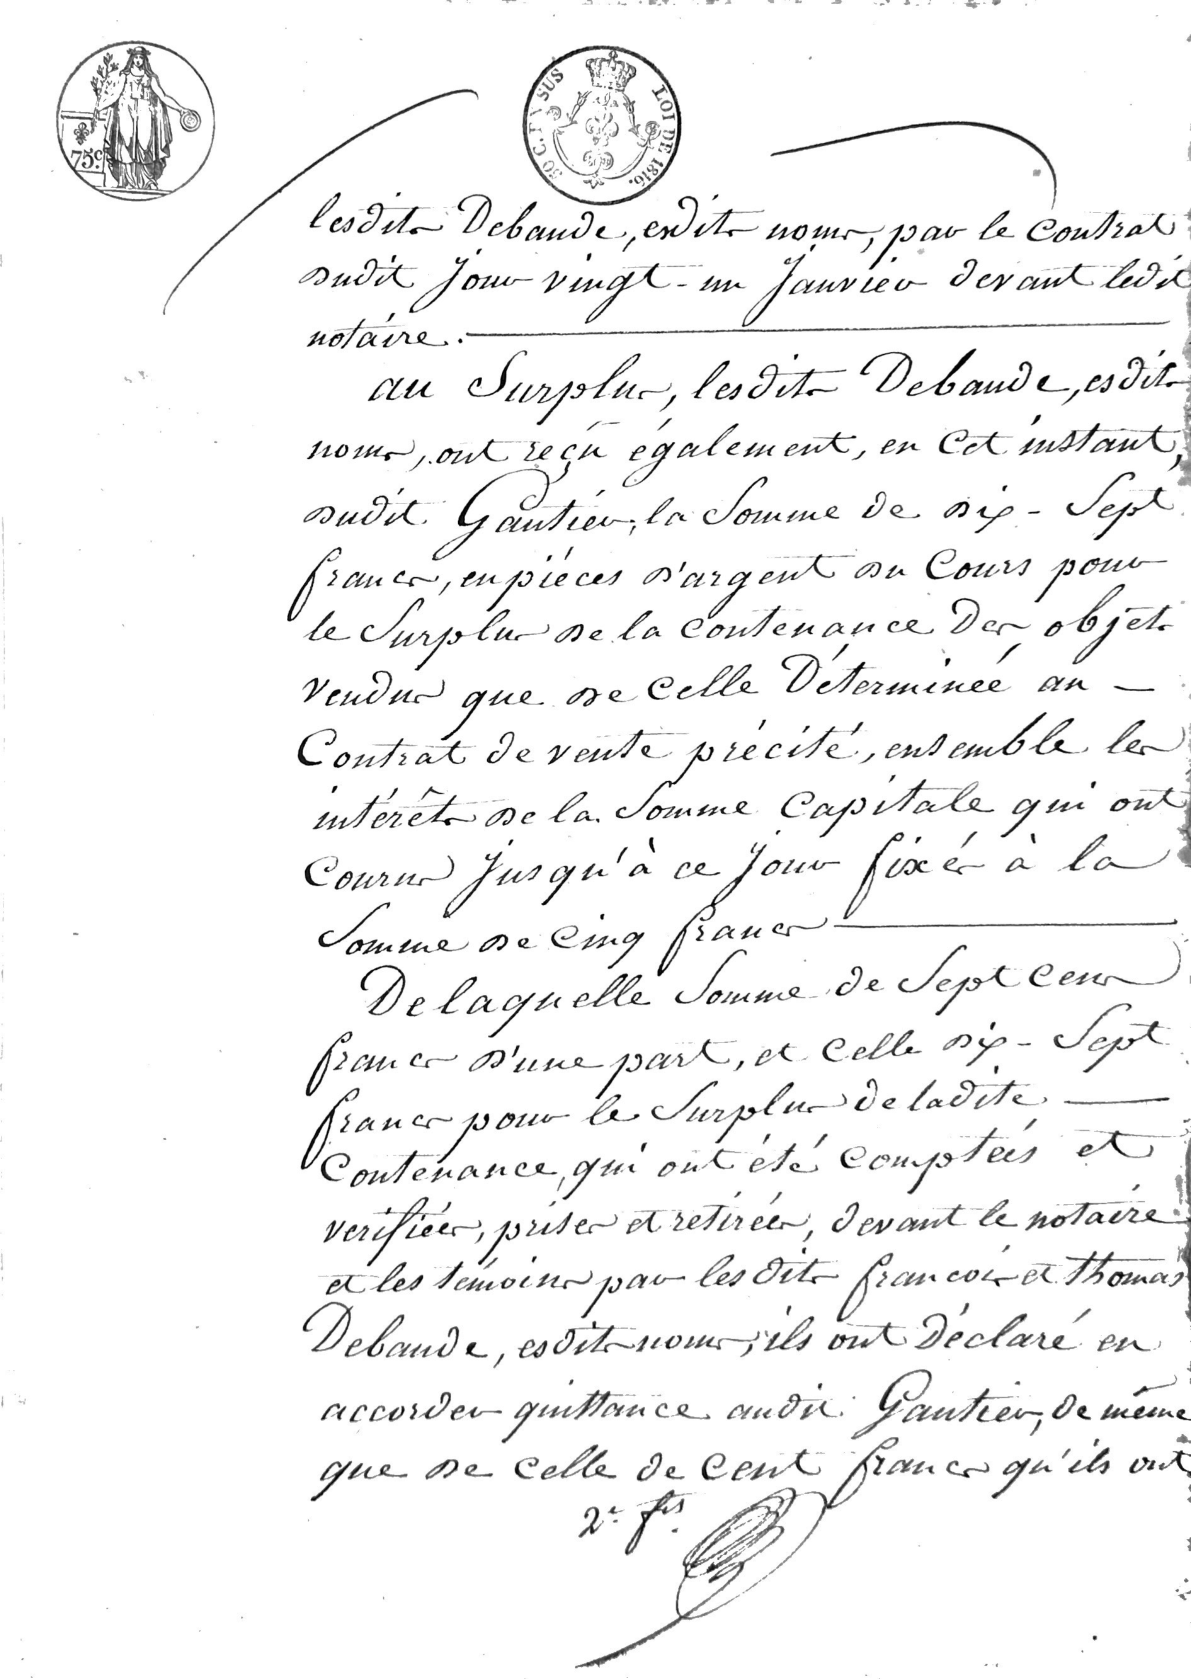 75c.
30 C. EN SUS
LOI DE 1816.
lesdits Debaude, esdits noms, par le Contrat
sudit jour vingt-un janvier devant ledit
notaire.
au Surplus, lesdits Debaude, esdits
noms, ont reçu également, en Cet instant,
dudit Gautier, la Somme de dix-Sept
francs, en pièces d'argent du Cours pour
le Surplus de la contenance Des objets
vendus que de celle Déterminée au
Contrat de vente précité, ensemble les
intérêts de la Somme Capitale qui ont
Courus jusqu'à ce jour fixés à la
Somme de Cinq francs
De laquelle Somme de Sept cens
francs d'une part, et celle dix-Sept
francs pour le Surplus de ladite
Contenance, qui ont été comptées et
verifiées, prises et retirées, devant le notaire
et les témoins par lesdits francois et thomas
Debaude, esdits noms, ils ont Déclaré en
accorder quittance audit Gautier, de même
que de celle de cent francs qu'ils ont
2e. fis.